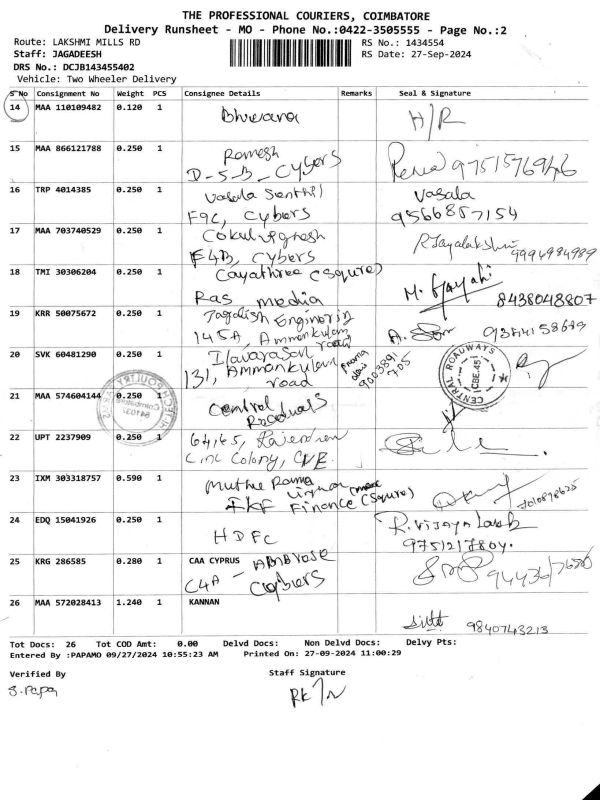 THE PROFESSIONAL COURIERS, COIMBATORE
Delivery Runsheet - MO - Phone No.:0422-3505555 - Page No.:2
Route: LAKSHMI MILLS RD
RS No.: 1434554
Staff: JAGADEESH
RS Date: 27-Sep-2024
DRS No.: DCJB143455402
Vehicle: Two Wheeler Delivery
S No Consignment No Weight PCS Consignee Details Remarks Seal & Signature
14 MAA 110109482 0.120 1 H/R
15 MAA 866121788 0.250 1 Ramesh
D-5-B- Cybers
16 TRP 4014385 0.250 1 Vasala Senthil Vasala
F9C, Cybers 9566857154
17 MAA 703740529 0.250 1
F4B, Cybers 9994984989
18 TMI 30306204 0.250 1 Gayathree (Squre)
Ras media 8438048807
19 KRR 50075672 0.250 1 Jagadish Enginering
145A, Ammankulam road
20 SVK 60481290 0.250 1 Ilavarasan
131, Ammankulam road
CENTRAL ROADWAYS
CBE.45
21 MAA 574604144 0.250 1 Central
22 UPT 2237909 0.250 1 64/65, Rajendran
Colony, CBE
23 IXM 303318757 0.590 1 Muthu Rama
IKF Finance (Squre) 7010898625
24 EDQ 15041926 0.250 1 HDFC R. Vijaya
9751217804.
25 KRG 286585 0.280 1 CAA CYPRUS
C4A - Cybers
26 MAA 572028413 1.240 1 KANNAN
9840743213
Tot Docs: 26 Tot COD Amt: 0.00 Delvd Docs: Non Delvd Docs: Delvy Pts:
Entered By :PAPAMO 09/27/2024 10:55:23 AM Printed On: 27-09-2024 11:00:29
Verified By Staff Signature
S. Papa